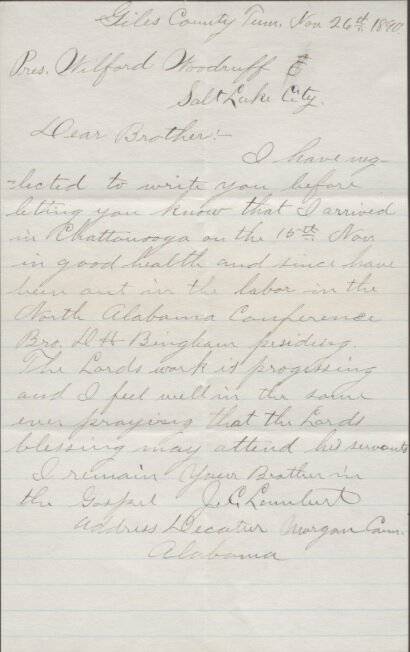 Giles County Tenn. Nov 26th 1890.
Pres. Wilford Woodruff
Salt Lake City.
Dear Brother:—
I have neg-
-lected to write you before
letting you know that I arrived
in Chattanooga on the 15th Nov
in good health and since have
been out in the labor in the
North Alabama Conference
Bro. D H Bingham presiding.
The Lords work is progressing
and I feel well in the same
ever praying that the Lords
blessing may attend his servants
I remain Your Brother in
the Gospel J. C. Lambert
Address Decatur Morgan Coun.
Alabama